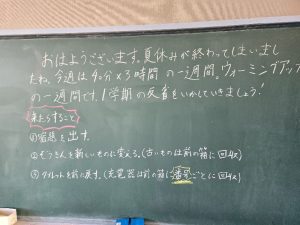 おはようございます。夏休みが終わってしまいまし
たね。今週は40分×3時間の一週間。ウォーミングアップ
の一週間です。1学期の反省をいかしていきましょう!
来たらすること
①宿題を出す。
②ぞうきんを新しいものに変える。(古いものは前の箱に回収)
③タブレットを前に戻す。(充電器は前の箱に番号ごとに回収)